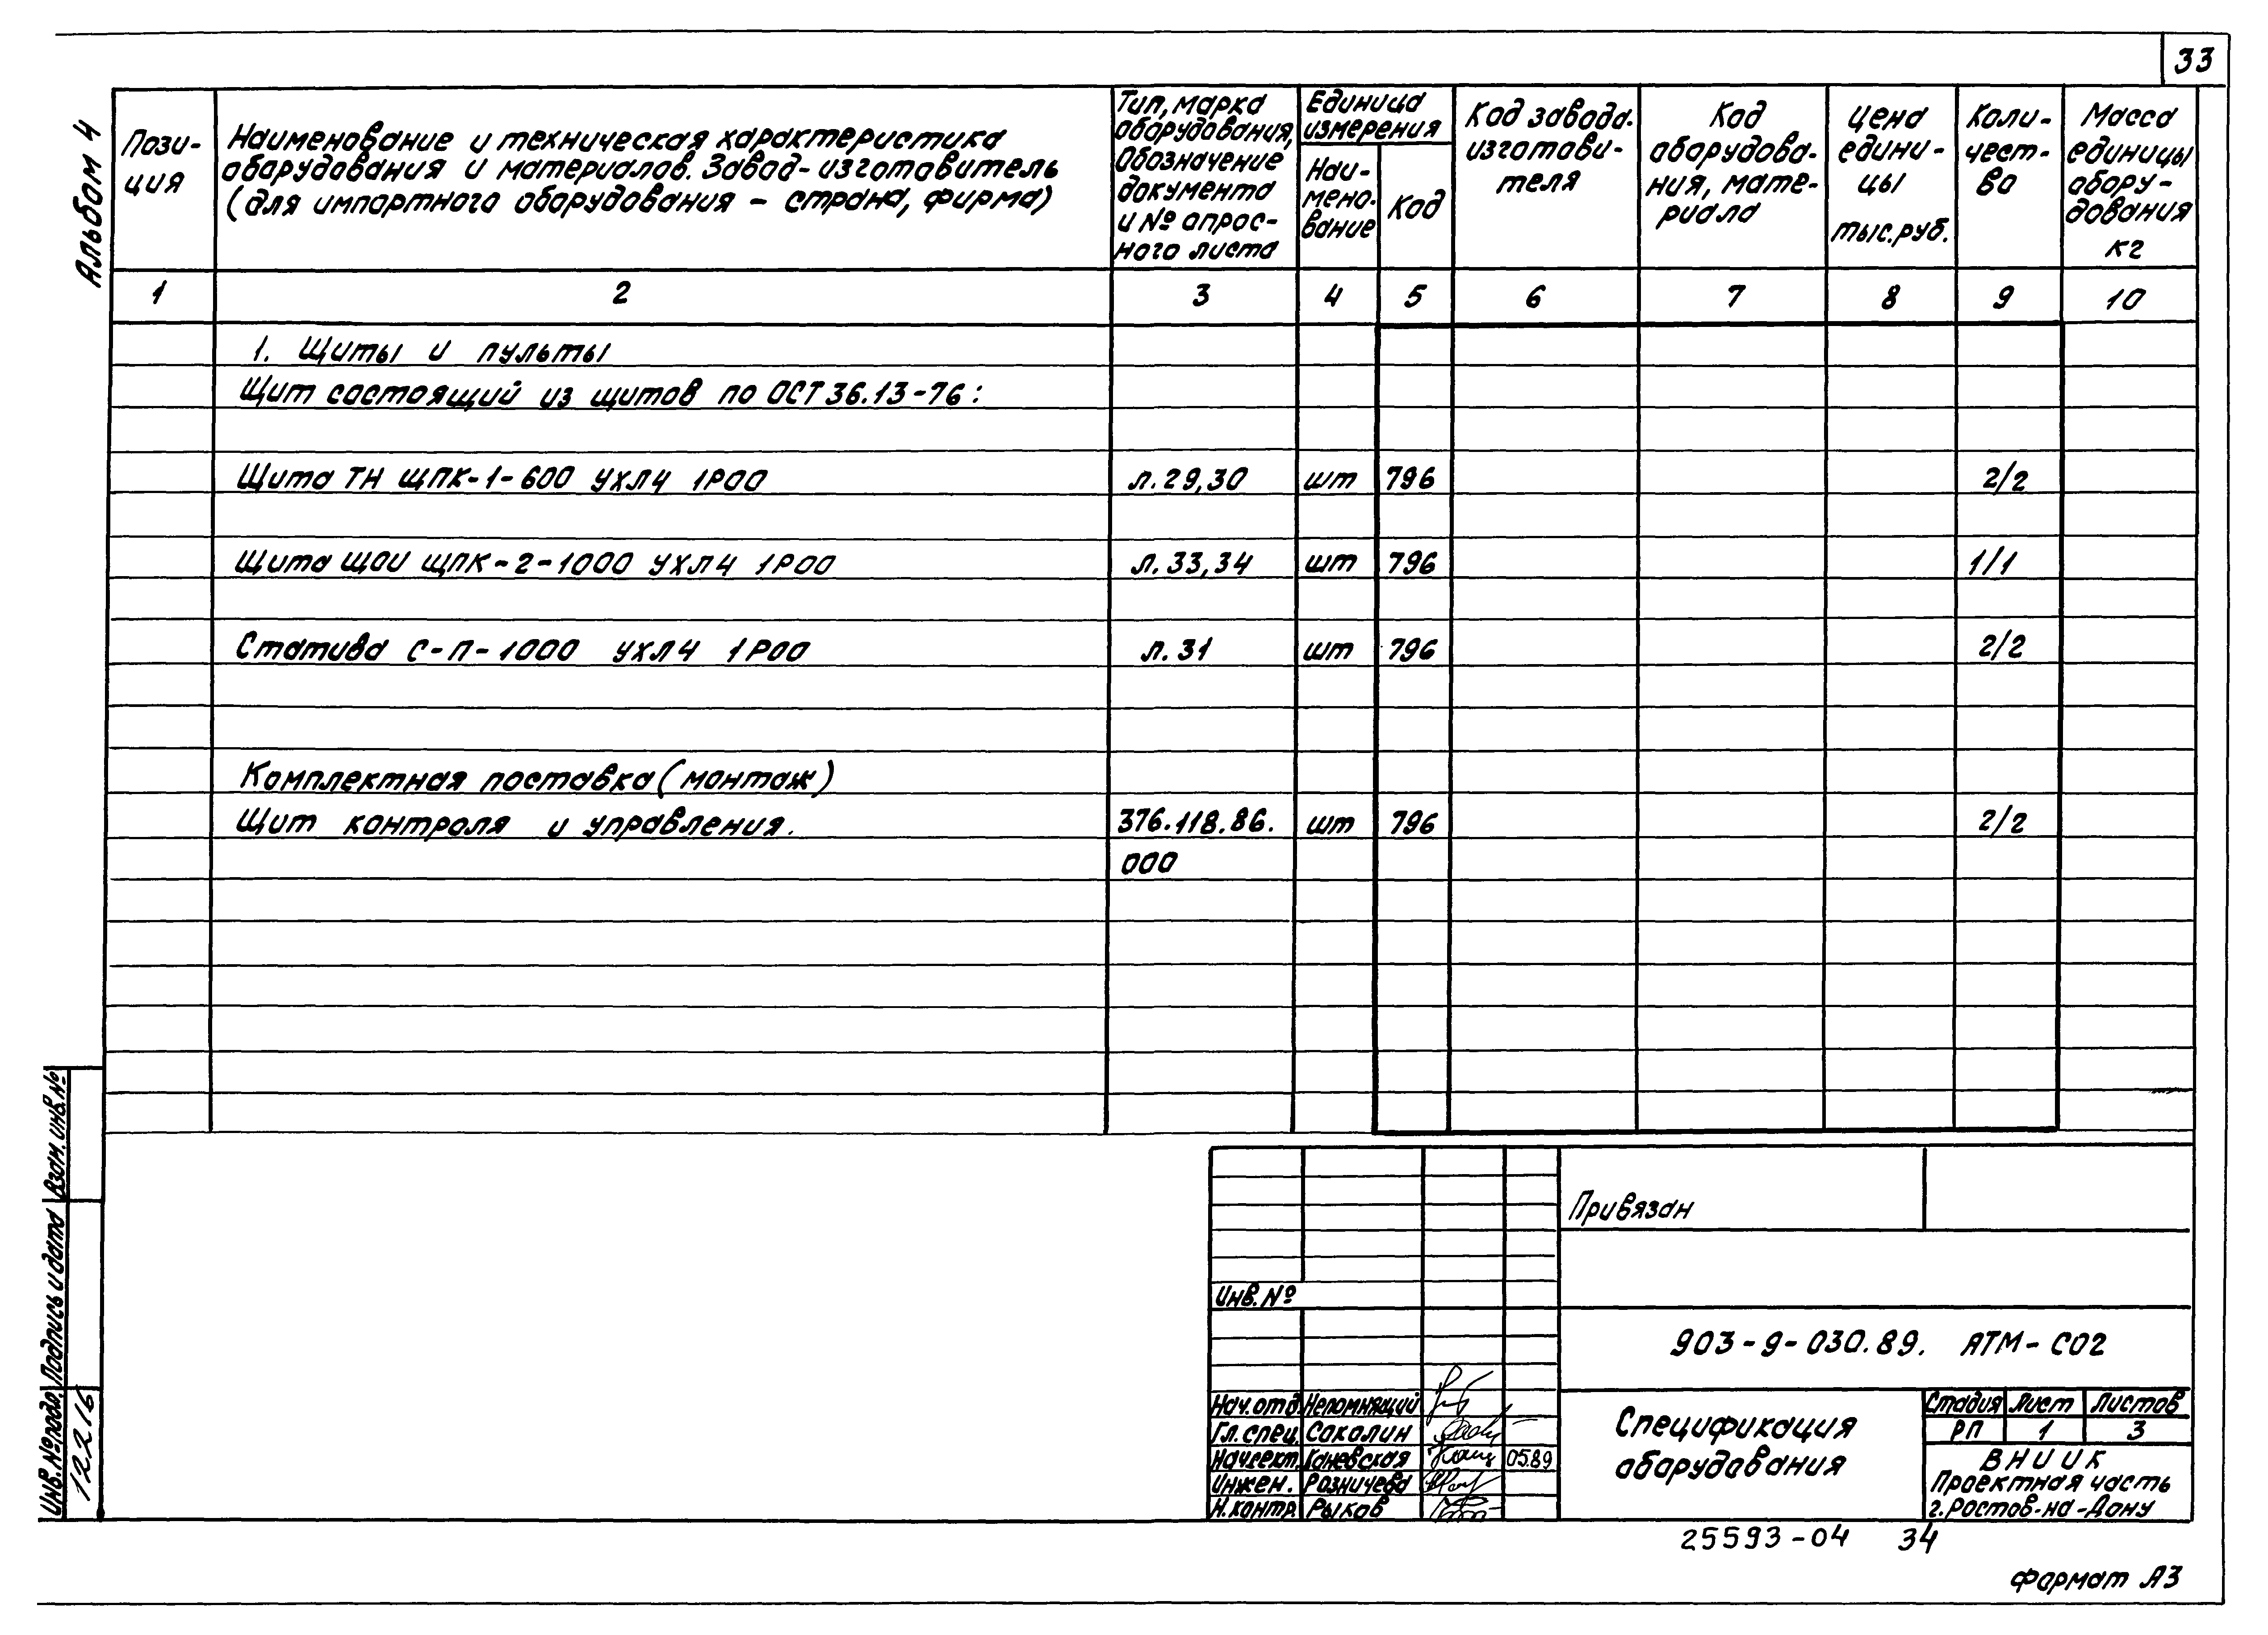 33
Альбом 4
Пози-
ция
Наименование и техническая характеристика
оборудования и материалов. Завод-изготовитель
(для импортного оборудования – страна, фирма)
Тип, марка
оборудования,
Обозначение
документа
и № опрос-
ного листа
Единица
измерения
Наи-
мено-
вание
Код
Код завода-
изготови-
теля
Код
оборудова-
ния, мате-
риала
Цена
едини-
цы
тыс.руб.
Коли-
чест-
во
Масса
единицы
обору-
дования
кг
1 2 3 4 5 6 7 8 9 10
1. Щиты и пульты
Щит состоящий из щитов по ОСТ 36.13-76:
Щита ТН ЩПК-1-600 УХЛ4 IP00 л.29,30 шт 796 2/2
Щита ЩОИ ЩПК-2-1000 УХЛ4 IP00 л.33,34 шт 796 1/1
Статива С-П-1000 УХЛ4 IP00 л.31 шт 796 2/2
Комплектная поставка (монтаж)
Щит контроля и управления. 376.118.86. шт 796 2/2
000
Взам. инв. №
Подпись и дата
Инв. № подл.
12216
Привязан
Инв. №
903-9-030.89. АТМ-СО2
Нач.отд. Непомнящий
Гл.спец. Соколин
Нач.сект. Каневская 05.89
Инжен. Розничева
Н.контр. Рыков
Спецификация
оборудования
Стадия Лист Листов
РП 1 3
ВНИИК
Проектная часть
г.Ростов-на-Дону
25593-04 34
Формат А3